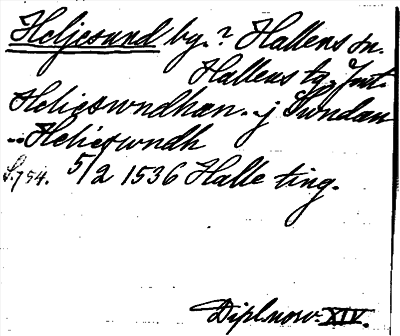 Heljesund by.? Hallens sn.
Hallens tg. Jmt.
Helieswndhæn. j Sundan
.. Helieswndh
S. 794. 5/2 1536 Halle ting.
Dipl. norv. XIV.